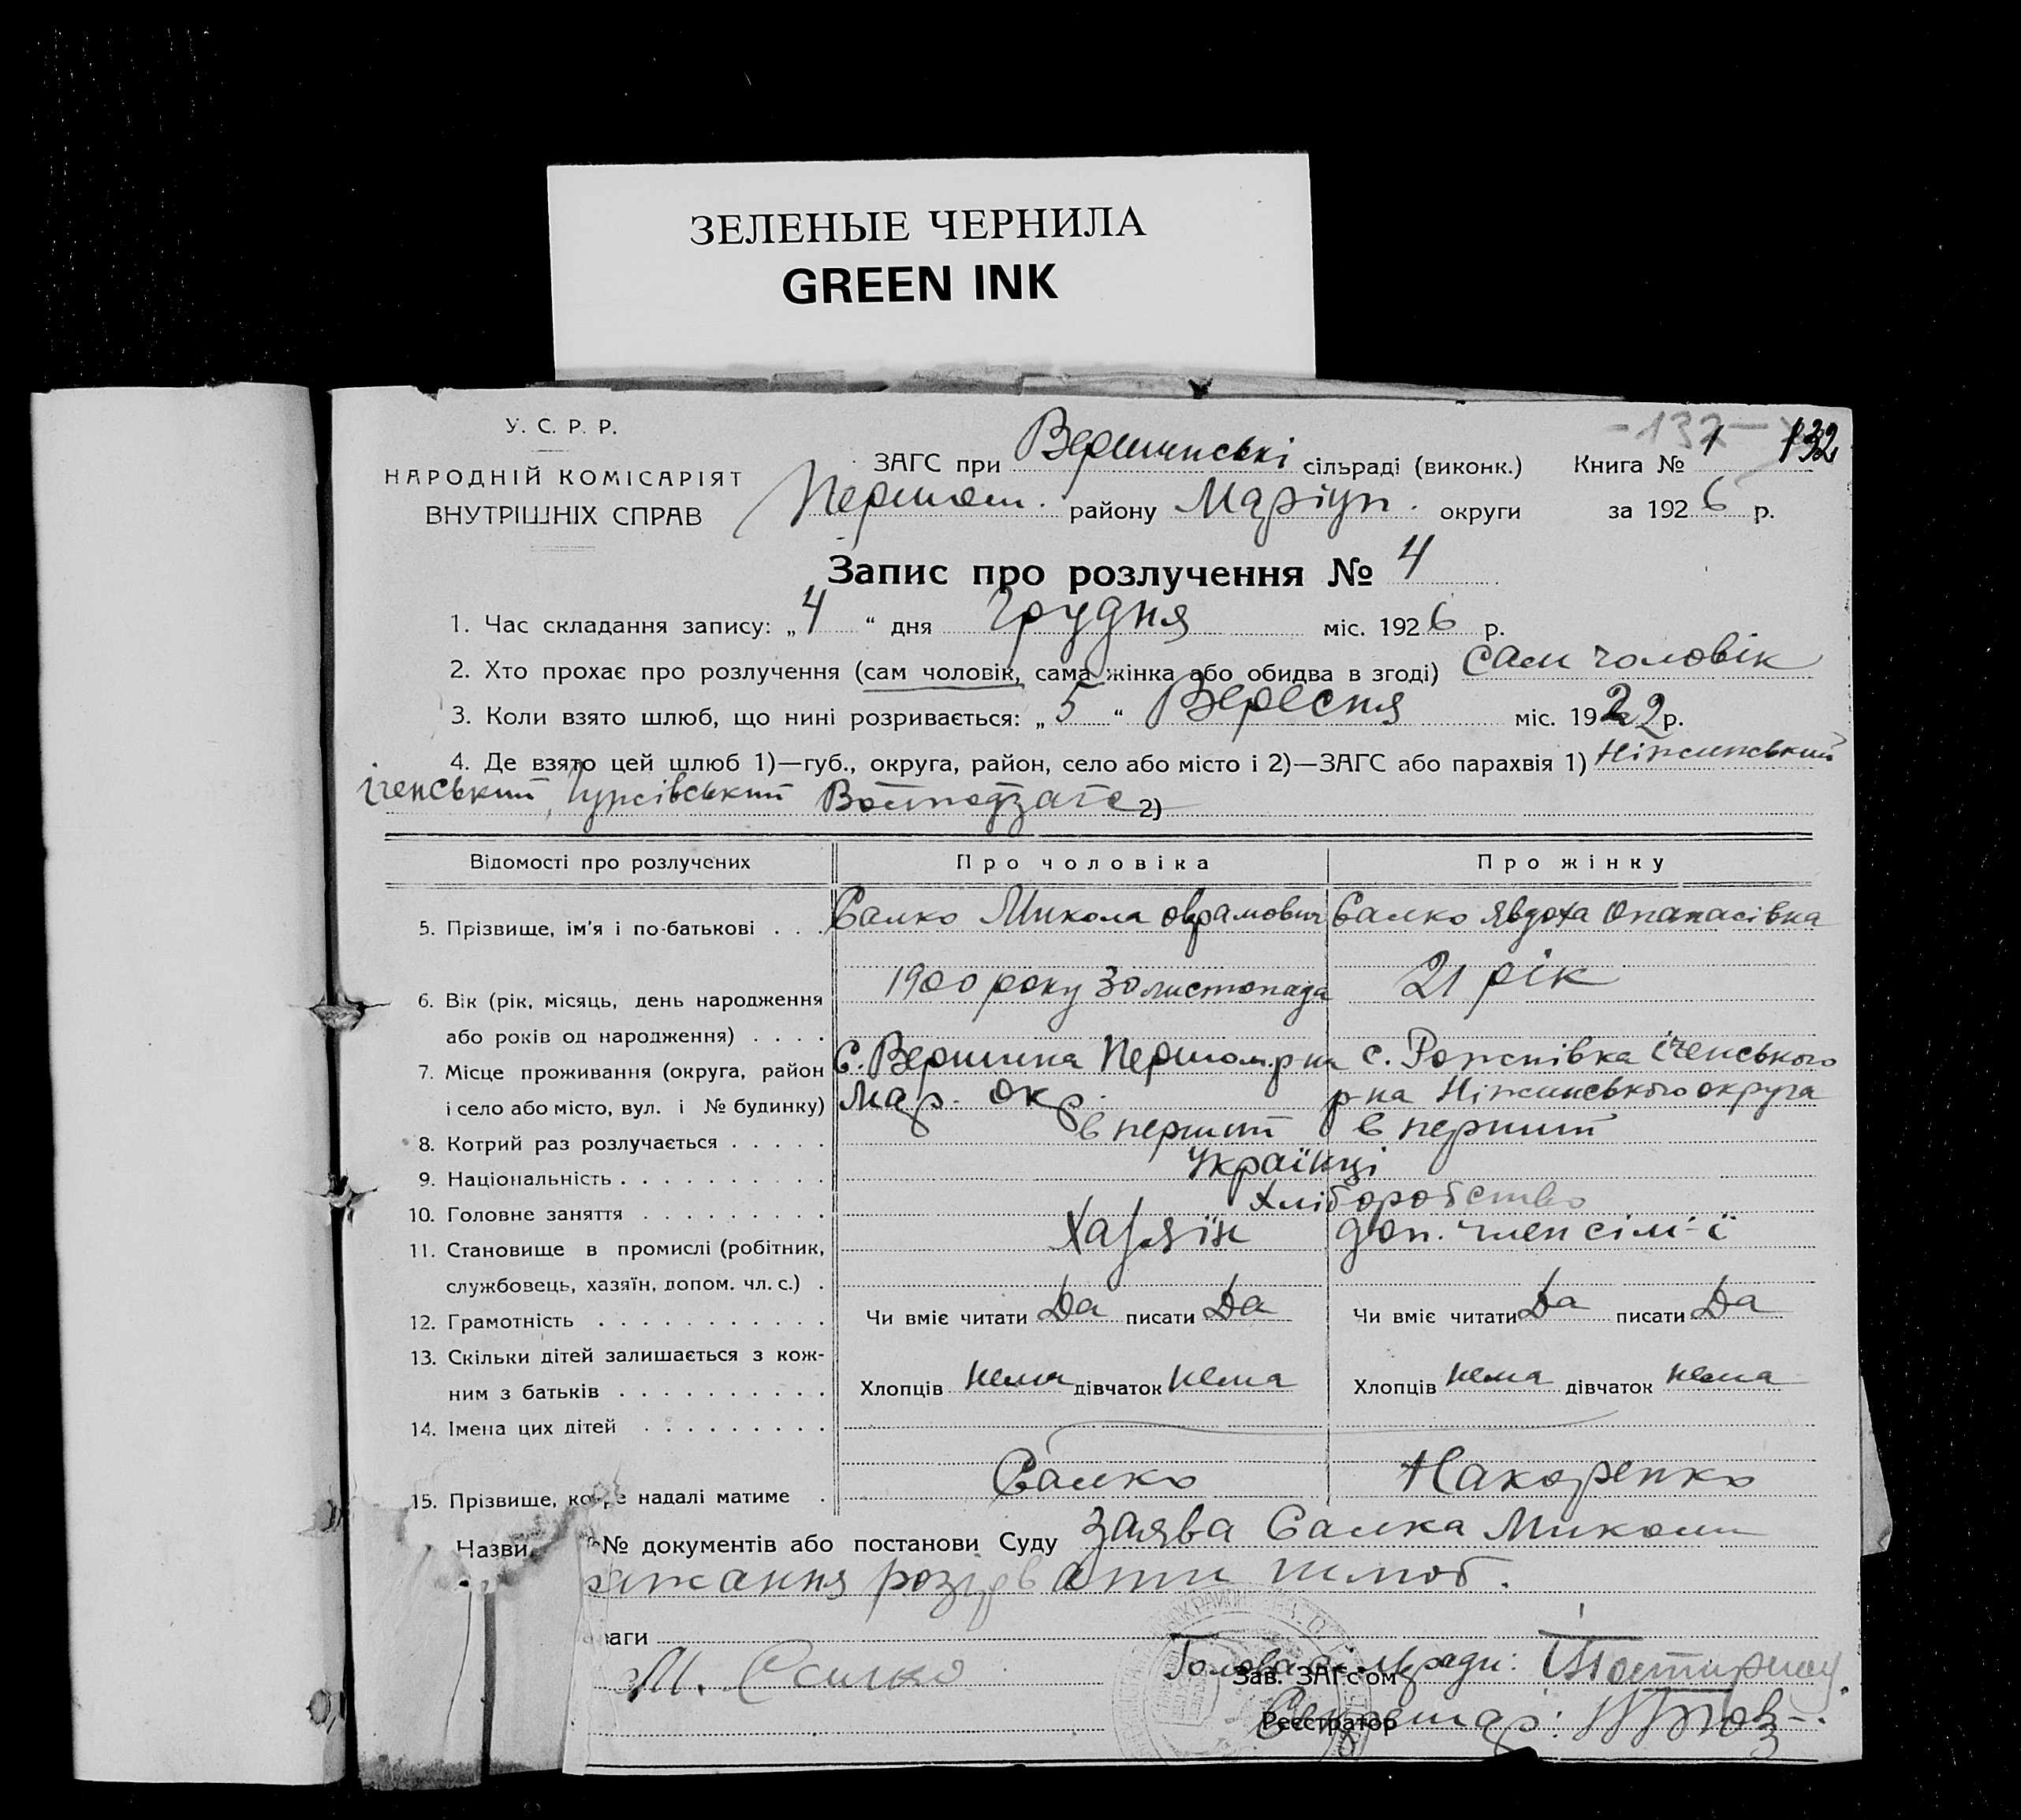 ЗЕЛЕНЫЕ ЧЕРНИЛА
GREEN INK
- 137 - 132
У. С. Р. Р.
НАРОДНІЙ КОМІСАРІЯТ
ВНУТРІШНІХ СПРАВ
ЗАГС при Вершинські сільраді (виконк.) Книга № 1
Першом. району Маріуп. округи за 1926 р.
Запис про розлучення № 4
1. Час складання запису: „4“ дня Грудня міс. 1926 р.
2. Хто прохає про розлучення (сам чоловік, сама жінка або обидва в згоді) Сам чоловік
3. Коли взято шлюб, що нині розривається: „5“ Вересня міс. 1922 р.
4. Де взято цей шлюб 1)—губ., округа, район, село або місто і 2)—ЗАГС або парахвія 1) Ніжинський
Іченський, 2)
Відомості про розлучених Про чоловіка Про жінку
5. Прізвище, ім'я і по-батькові . . . Салко Микола Оврамович Салко Явдоха Опанасівна
6. Вік (рік, місяць, день народження 1900 року 30 листопада 21 рік
або років од народження) . . . .
7. Місце проживання (округа, район С. Вершина Першом. р-на с. Рожнівка Іченського
і село або місто, вул. і № будинку) Мар. окр. р-на Ніжинського округа
8. Котрий раз розлучається . . . . . в перший в перший
9. Національність . . . . . . . . . . Українці
10. Головне заняття . . . . . . . . . Хліборобство
11. Становище в промислі (робітник, Хазяїн доп. член сім'ї
службовець, хазяїн, допом. чл. с.) .
12. Грамотність . . . . . . . . . . . Чи вміє читати Да писати Да Чи вміє читати Да писати Да
13. Скільки дітей залишається з кож-
ним з батьків . . . . . . . . . . Хлопців нема дівчаток нема Хлопців нема дівчаток нема
14. Імена цих дітей . . . . . . . . .
15. Прізвище, котре надалі матиме . Салко Накоренко
Назви № документів або постанови Суду Заява Салка Миколи
розірвати шлюб.
ваги
М. Салко Голова сільради:
Зав. ЗАГС'ом
Секретар:
Реєстратор